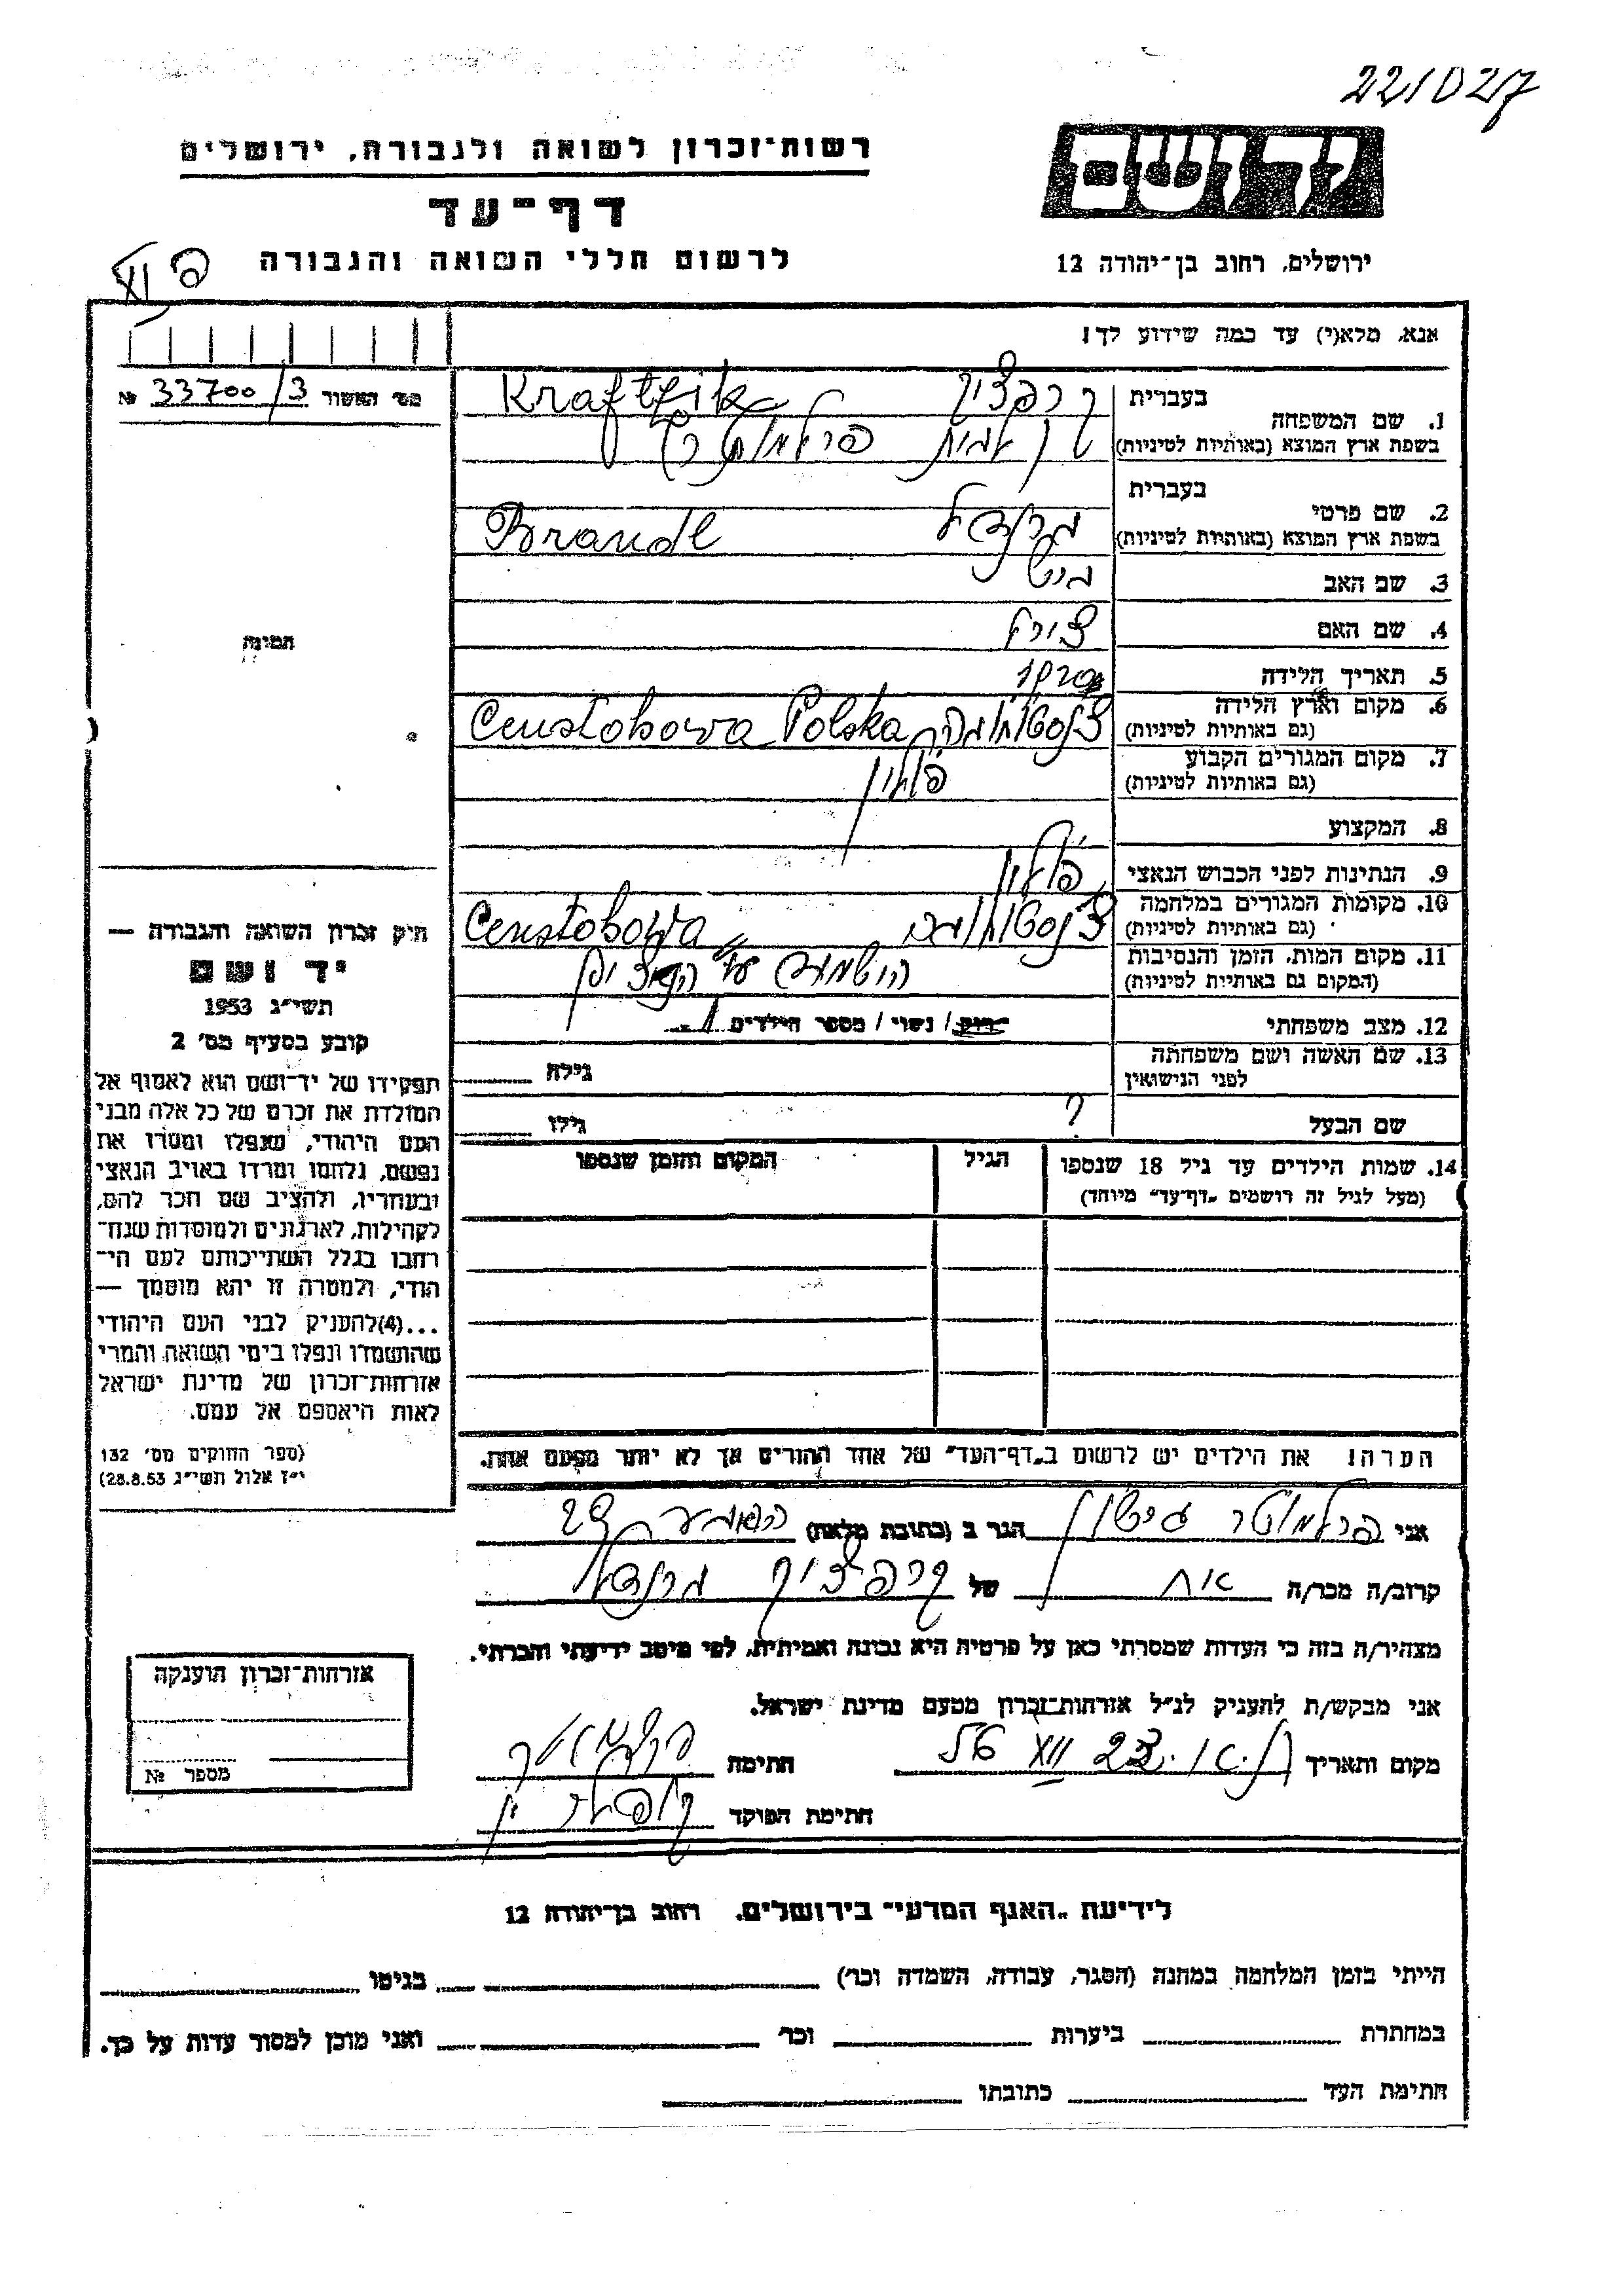 221027
רשות־זכרון לשואה ולגבורה, ירושלים
דף־עד
לרשום חללי השואה והגבורה
יד ושם
ירושלים, רחוב בן־יהודה 12
אנא, מלא(י) עד כמה שידוע לך!
מס׳ האשור 33700/3 №
1. שם המשפחה
בעברית
קרפציק Kraftzik
בשפת ארץ המוצא (באותיות לטיניות)
2. שם פרטי
בעברית
ברנדל Brandl
בשפת ארץ המוצא (באותיות לטיניות)
3. שם האב
4. שם האם
צירל
5. תאריך הלידה
6. מקום וארץ הלידה
(גם באותיות לטיניות)
צ'נסטוחובה Censtohowa Polska
7. מקום המגורים הקבוע
(גם באותיות לטיניות)
פולין
8. המקצוע
9. הנתינות לפני הכבוש הנאצי
פולין
10. מקומות המגורים במלחמה
(גם באותיות לטיניות)
צ'נסטוחובה Censtohowa
11. מקום המות, הזמן והנסיבות
(המקום גם באותיות לטיניות)
הושמדה ע"י הנאצים
12. מצב משפחתי
רווק / נשוי / מספר הילדים 1
13. שם האשה ושם משפחתה
לפני הנישואין
גילה
שם הבעל
?
גילו
14. שמות הילדים עד גיל 18 שנספו
(מעל לגיל זה רושמים "דף־עד" מיוחד)
הגיל
המקום והזמן שנספו
הערה! את הילדים יש לרשום ב"דף־העד" של אחד ההורים אך לא יותר מפעם אחת.
תמונה
חיק זכרון השואה והגבורה —
יד ושם
תשי״ג 1953
קובע בסעיף מס׳ 2
תפקידו של יד־ושם הוא לאסוף אל
המולדת את זכרם של כל אלה מבני
העם היהודי, שנפלו ומסרו את
נפשם, נלחמו ומרדו באויב הנאצי
ובעוזריו, ולהציב שם וזכר להם,
לקהילות, לארגונים ולמוסדות שנח־
רבו בגלל השתייכותם לעם הי־
הודי, ולמטרה זו יהא מוסמך —
...(4) להעניק לבני העם היהודי
שהושמדו ונפלו בימי השואה והמרי
אזרחות־זכרון של מדינת ישראל
לאות היאספם אל עמם.
(ספר החוקים מס׳ 132
י״ז אלול תשי״ג 28.8.53)
אני פרלמוטר הגר ב (כתובת מלאה) 29
קרוב/ה מכר/ה אח של קרפציק ברנדל
מצהיר/ה בזה כי העדות שמסרתי כאן על פרטיה היא נכונה ואמיתית, לפי מיטב ידיעתי והכרתי.
אני מבקש/ת להעניק לנ״ל אזרחות־זכרון מטעם מדינת ישראל.
מקום ותאריך חתימה פרלמוטר
חתימת הפוקד
אזרחות־זכרון הוענקה
מספר №
לידיעת "האגף המדעי" בירושלים, רחוב בן־יהודה 12
הייתי בזמן המלחמה במחנה (הסגר, עבודה, השמדה וכו׳) בגיטו
במחתרת ביערות וכו׳ ואני מוכן למסור עדות על כך.
חתימת העד כתובתו